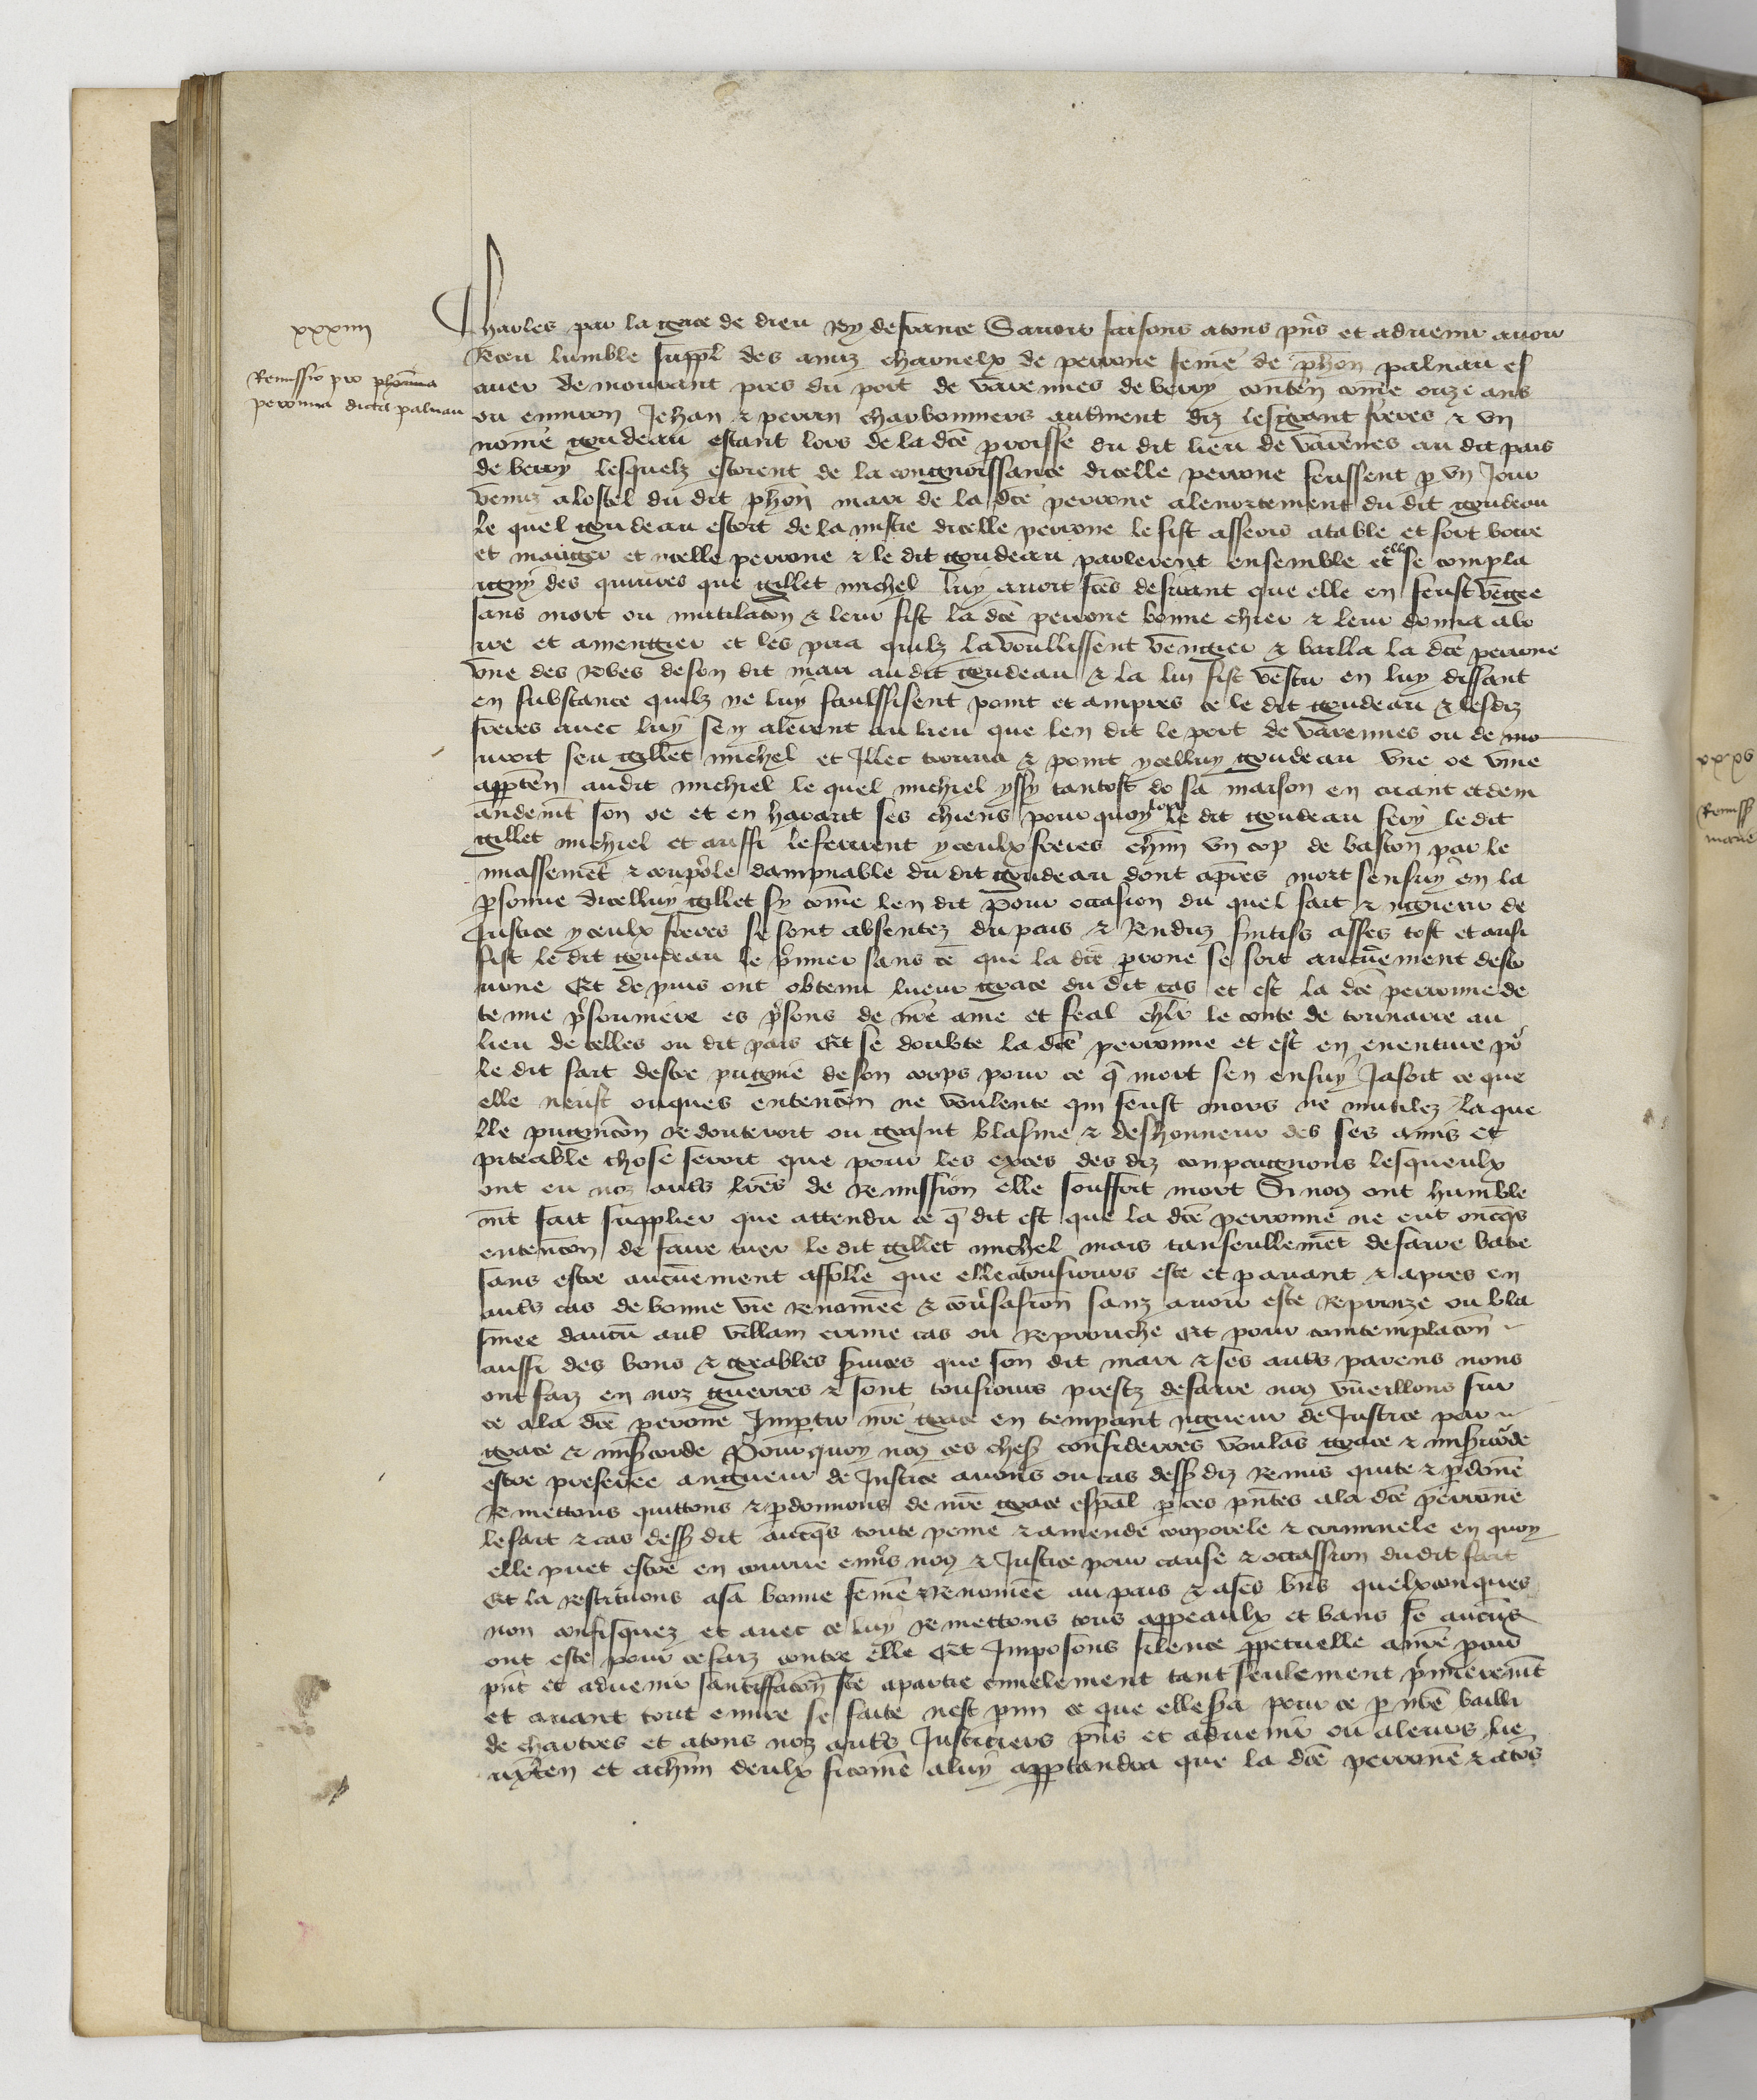 xxxiiii
Remissio pro phelippa
perronna dicta palnau
Charles par la grace de dieu Roy de france Savoir faisons a tous pn̄s et advenir avoir
Receu lumble suppl̄ des amiz charnelx de perrone fem̄e de ph̄on palnau es
cuer demourant pres du port de varennes de berry conten̄ com̄e onze ans
ou environ Jehan & perrin charbonniers autr̄ment diz lesgrant freres & un
nom̄e goudeau estant lors de la dcē p̄roisse du dit lieu de varēnes au dit pais
de berry lesquelz estoient de la congnoissance dicelle perrone feussent p̄ un Jour
venuz a lostel du dit ph̄on mari de la dcē perrone a lenortement du dit goudeau
le quel goudeau estoit de la dicelle perrone le fist asseoir a table et fort boire
et mangier et icelle perrone & le dit goudeau parlerent ensemble et elle se compla
igny des iniures que gillet michel luy avoit fcēs desirant que elle en feust vēgee
sans mort ou mutilacōn & leur fist la dcē perrone bonne chier & leur donna a boi
re et a mengier et les pria quilz la voullissent vengier & bailla la dcē perrone
une des robes de son dit mari au dit goudeau & la lui fist vestir en luy dissant
en substance quilz ne luy faulssisent point et ampres ce le dit goudeau & lesdiz
freres avec luy sen y alerent au lieu que len dit le port de varennes ou demo
uroit feu gillet michel et Illec trouva & print ycelluy goudeau une oe vive
apptēn̄ audit michiel le quel michiel yssy tantost de sa maison en criant et dem
andent son oe et en harant ses chiens pour quoy lors le dit goudeau fery le dit
gillet michiel et aussi le ferirent yceulx freres ch̄un un cop de baston par le
& couposle dampnable du dit goudeau dont apres mort sensuy en la
p̄sonne dicelluy gillet sy com̄e len dit Pour occasion du quel fait & rigueur de
Justice yceulx freres se sont absentez du pais & Renduz fuitifs asses tost et ausi
fist le dit goudeau le p̄mier sans ce que la dcē p̄rone se soit aucunement desto
urne Et de puis ont obtenu lueur grace du dit cas et est la dcē perronne de
tenue p̄sonniere es p̄sons de nr̄e ame et feal ch̄lr̄ le conte de tonnarre au
lieu de celles ou dit pais Et se doubte la dcē perronne et est en enenture por̄
le dit fait destre pugnie de son corps pour ce q̄ mort sen ensuy Jasoit ce que
elle neust onques entencōn ne voulente qui feust mors ne mutilez la que
lle pugnicōn redonteroit ou grant blasme & deshonneur des ses amis et
piteable chose seroit que pour les exces des diz conpaignons lesqueulx
ont eu noz autr̄s lrēs de Remission elle souffrit mort Si nous ont humble
mt̄ fait supplier que attendu ce q̄ dit est que la dcē perronne ne eut oncqs̄
entencōn de faire tuer le dit gillet michel mais tanseullemēt de faire batre
sans estre aucunement affolle que elle a tousiours este et p avant & apres en
autr̄s cas de bonne vie renom̄ee & cōnv̄sasion sanz avoir este Reprinze ou bla
smee daucun autr̄ villain crime cas ou reprouche Et pour comtemplacōn
aussi des bons & greables s̄vices que son dit mari & ses autr̄s parens nous
ont faiz en noz guerres & sont tousiours prestz de faire nous vueillons sur
ce a la dcē perrone Imp̄tir nr̄e grace en tempant rigueur de Justice par
grace & mis̄icorde Pour quoy nous ces choses considerees voulās grace & mis̄icorde
estre preferee a rigueur de Justice avons ou cas dess̄ diz remis quite & p̄donē
Remettons quittons & p̄donnons de nr̄e grace esp̄al p̄ ces pn̄tes a la dcē perronē
le fait & cas dess̄ dit avecqs̄ toute peine & amende corporele & criminele en quoy
elle puet estre en courue env̄s nous & Justice pour cause & occassion du dit fait
Et la restituons a sa bonne fem̄e & renom̄ee au pais & a ses bn̄s quelxconques
non confisquez et avec ce luy remettons tous appeaulx et bans se aucūs
ont este pour ce faiz contre elle Et Imposons silence p̄petuelle a nr̄e p̄cur
pn̄t et advenir santiffacōn fcē a partie civilement tant seulement p̄mieremt̄
et avant tout euvre se faite nest p̄mi ce que elle pour ce p̄ nr̄e bailli
de chartres et a tous noz autr̄s Justiciers pn̄s et advenir ou a leurs lie
uxten et a ch̄un deulx si com̄e a luy apptandra que la dcē perronē & a tōs
xxxv
Remiss